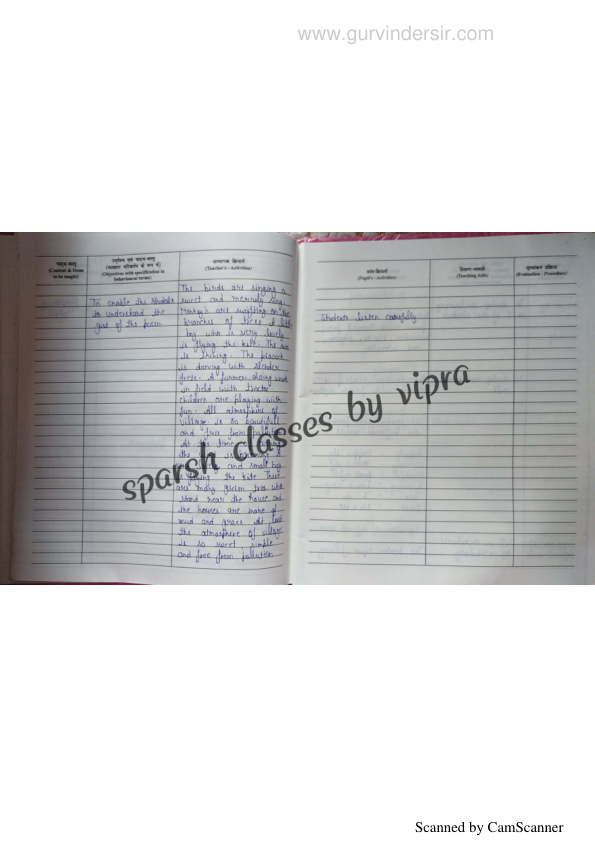 www.gurvindersir.com
पाठ्य-वस्तु
(Content & Items
to be taught)
उद्देश्य एवं पाठ्य-वस्तु
(व्यवहार परिवर्तन के रूप में)
(Objectives with specification in
behavioural terms)
अध्यापक क्रियायें
(Teacher's - Activities)
To enable the students
to understand the
gist of the poem
The birds are singing a
sweet and merrily song.
are on the
branches of trees. A little
boy who is very lovely
is flying the kite. The sun
is shining. The peacock
is dancing with slender
feets. A farmer doing work
in field with
children are playing with
fun. All atmosphere of
village is so beautifull
and free from
At the time
the is
and small boy
the kite There
are many green tree who
stand near the house and
the houses are made of
mud and grass. At last
the atmosphere of village
is so sweet, simple
and free from pollution
छात्र-क्रियायें
(Pupil's - Activities)
शिक्षण-सामग्री
(Teaching Aids)
मूल्यांकन प्रक्रिया
(Evaluation - Procedure)
Students listen carefully
sparsh classes by vipra
Scanned by CamScanner